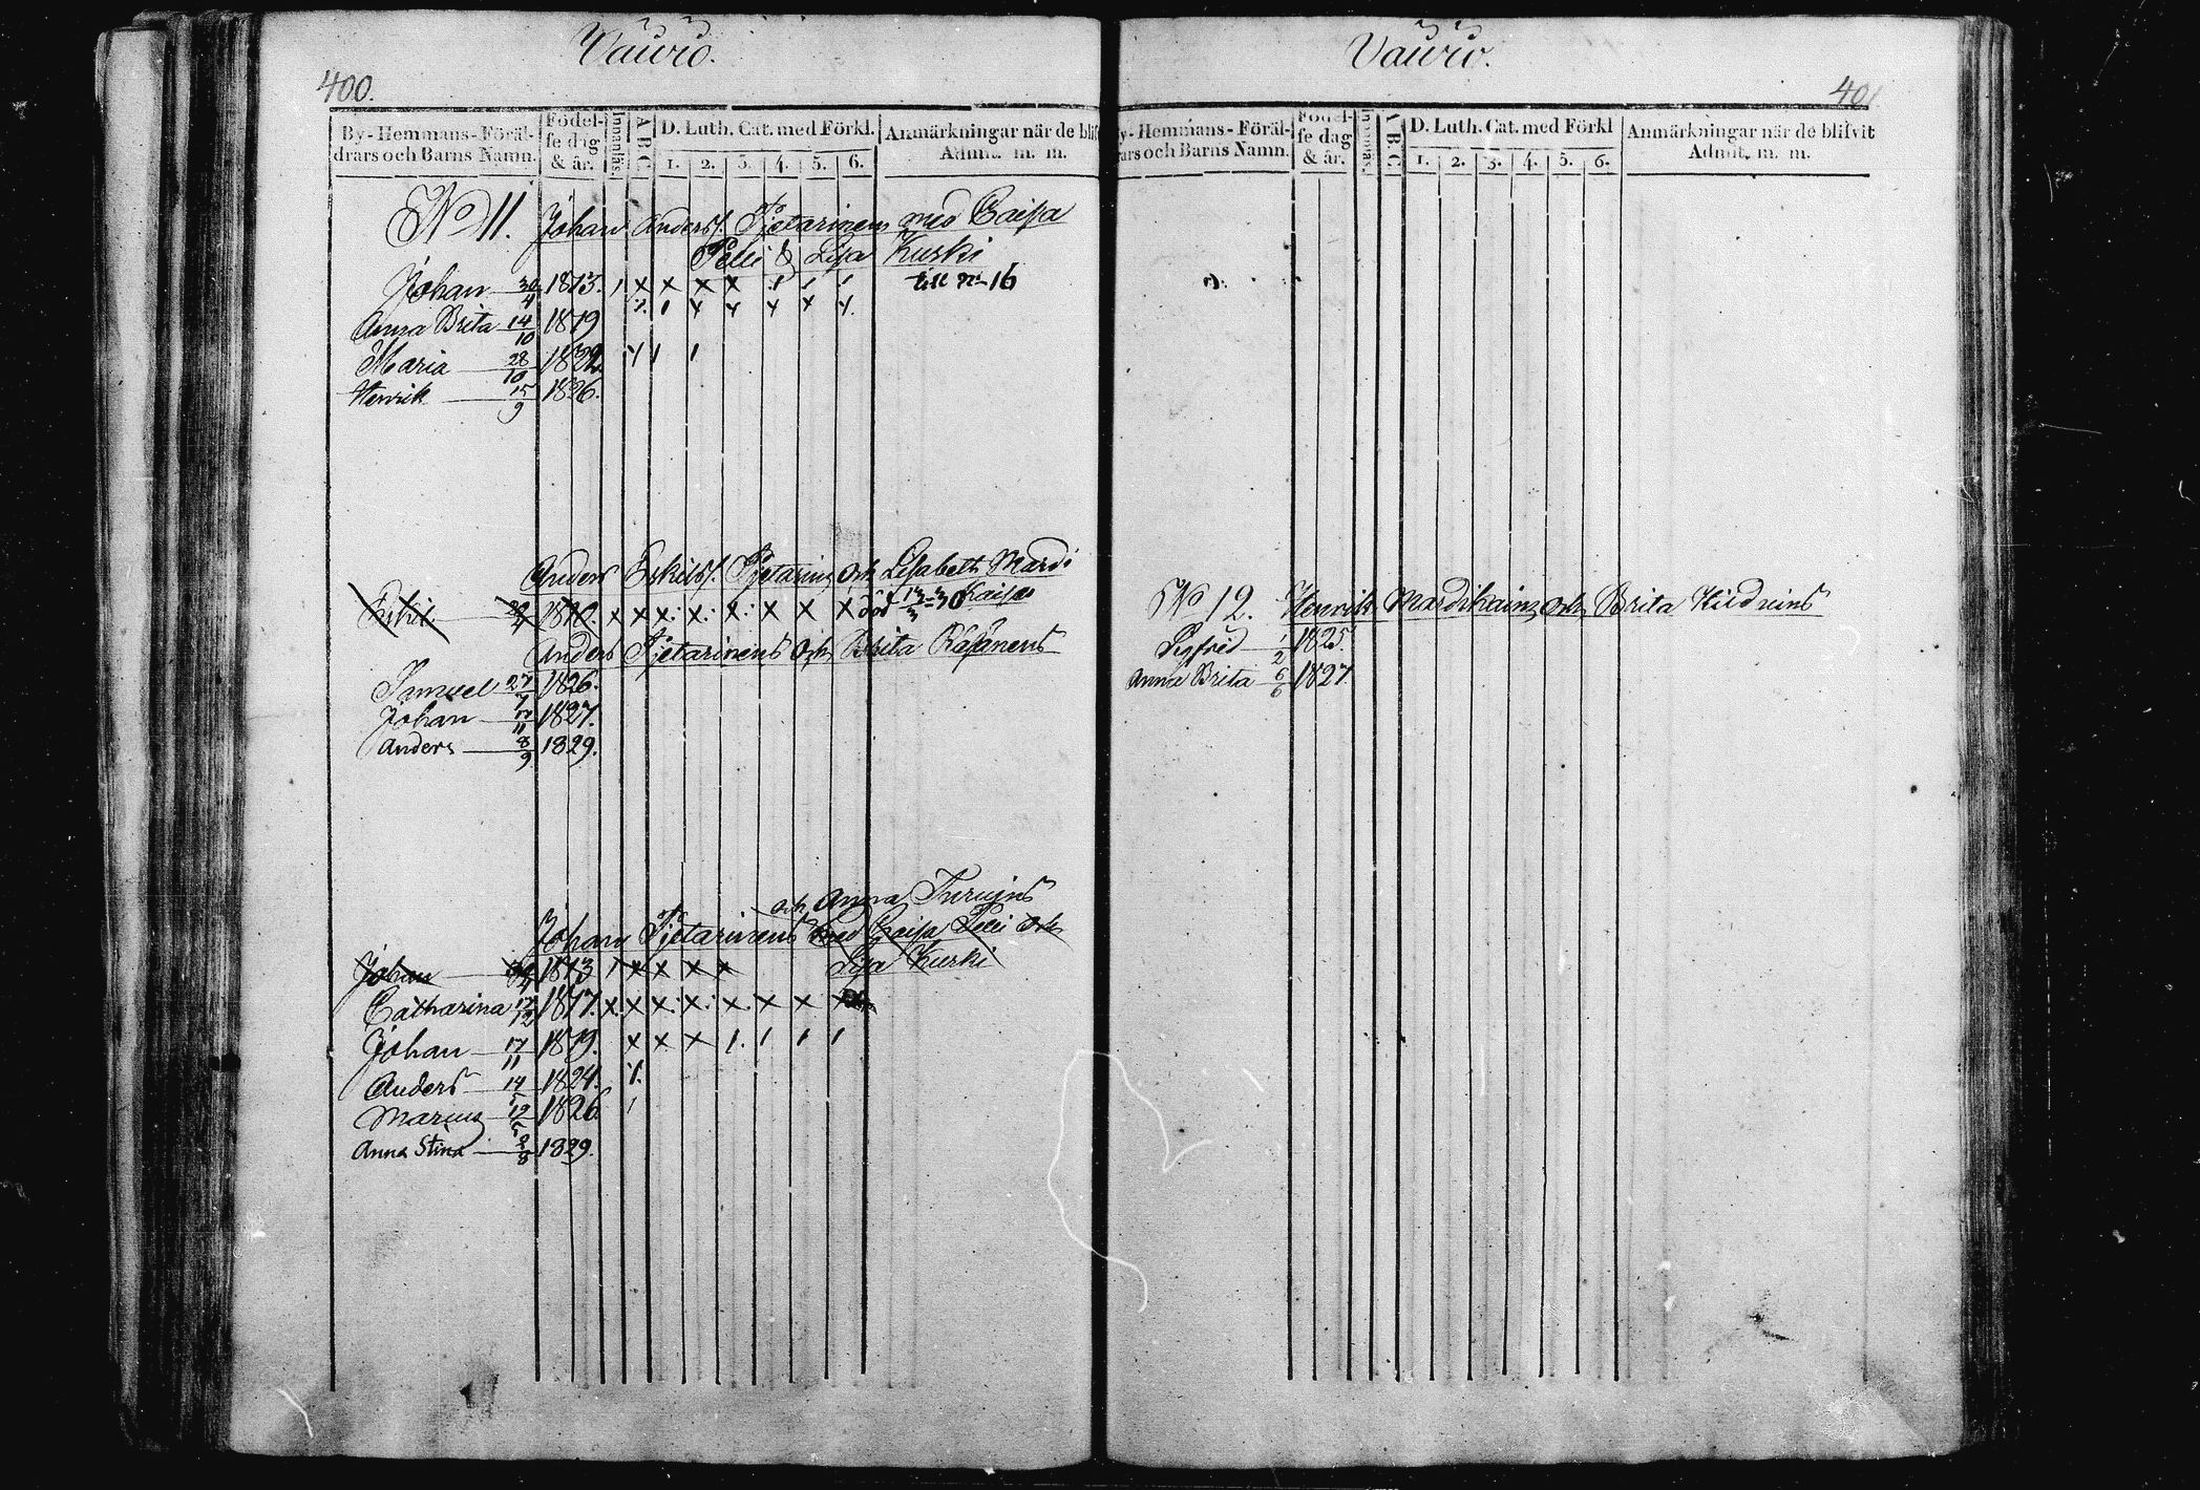 Vauro.
400.
By-Hemmans-Föräl-
drars och Barns Namn.
Födel-
se dag
& år.
Innanläs
A B C
D. Luth. Cat. med Förkl.
1. 2. 3. 4. 5. 6.
Anmärkningar när de blif
Admit. m. m.
No 11. Johan Anderss. Pjetarinen med Caisa
Pelli & Lisa Kurki
Johan 30/4 1813. till No 16
Anna Brita 14/10 1819
Maria 28/10 1822.
Henrik 15/9 1826.
Anders Eskilss. Pjetarinz och Lisabeth Mardi
kaise
Eskil 1810. död 13/3-30
Anders Pjetarinens och Brita Räsänens
Samuel 27/7 1826.
Johan 17/11 1827.
Anders 8/9 1829.
och Anna
Johan Pjetarinens med Caisa Pelli och
Lisa Kurki
Johan 1813
Catharina 12/12 1817.
Johan 17/11 1819.
Anders 14 1824.
Marcus 12 1826
Anna Stina 2/8 1829.
Vauro.
401
y-Hemmans-Föräl-
rars och Barns Namn.
Födel-
se dag
& år.
Innanläs.
A B C
D. Luth. Cat. med Förkl
1. 2. 3. 4. 5. 6.
Anmärkningar när de blifvit
Admit. m. m.
No 12. Henrik Mardikainz och Brita
Sigfrid 1/2 1825.
Anna Brita 6/6 1827.